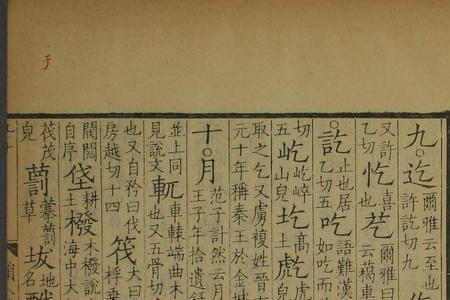 九。迄爾雅云至也
許訖切九
又許
乙切
忔喜
也
芞爾雅曰
云稿車
訖止也居
乙切五
吃語難漢
如吃而
切
五
屹屹崪
山皃
圪高
土
取之乞又虜複姓晉有
元十年稱秦王於金城
十。月范子計然云月
王子年拾遺
並上同
見說文
軏車轅端曲木
也又五骨切
也又自矜曰伐
房越切十四
筏大曰
桴
閥閱
自序
垡耕
土
橃木橃說
海中大
茷茂
皃
藅
草
坺地
名